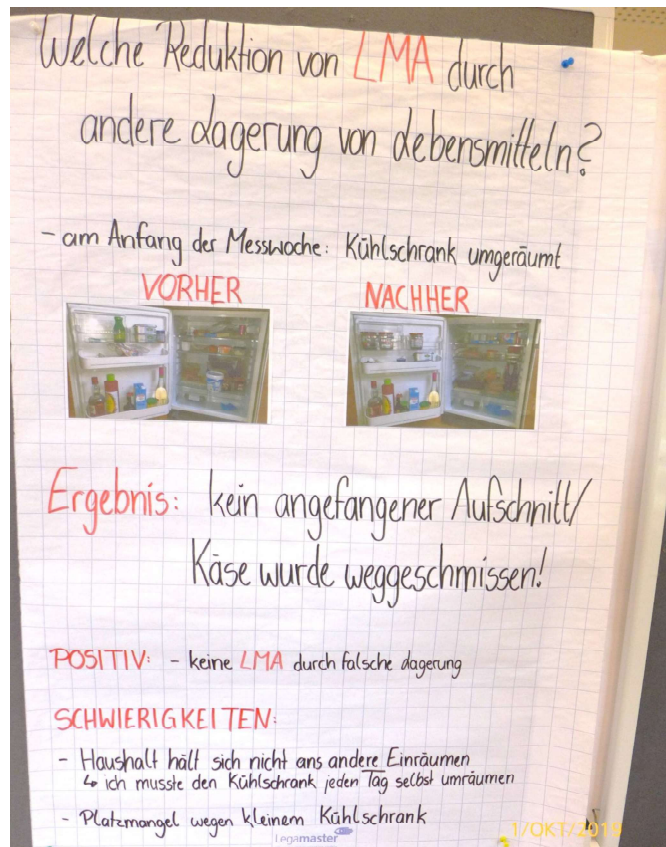 Welche Reduktion von LMA durch
andere Lagerung von Lebensmitteln?
- am Anfang der Messwoche: Kühlschrank umgeräumt
VORHER
NACHHER
Ergebnis: kein angefangener Aufschnitt/
Käse wurde weggeschmissen!
POSITIV: - keine LMA durch falsche Lagerung
SCHWIERIGKEITEN:
- Haushalt hält sich nicht ans andere Einräumen
↳ ich musste den Kühlschrank jeden Tag selbst umräumen
- Platzmangel wegen kleinem Kühlschrank
Legamaster
1/OKT/2019